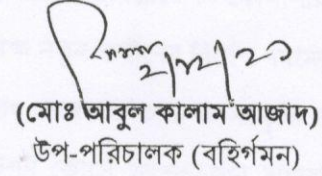 (মোঃ আবুল কালাম আজাদ)
উপ-পরিচালক (বহির্গমন)